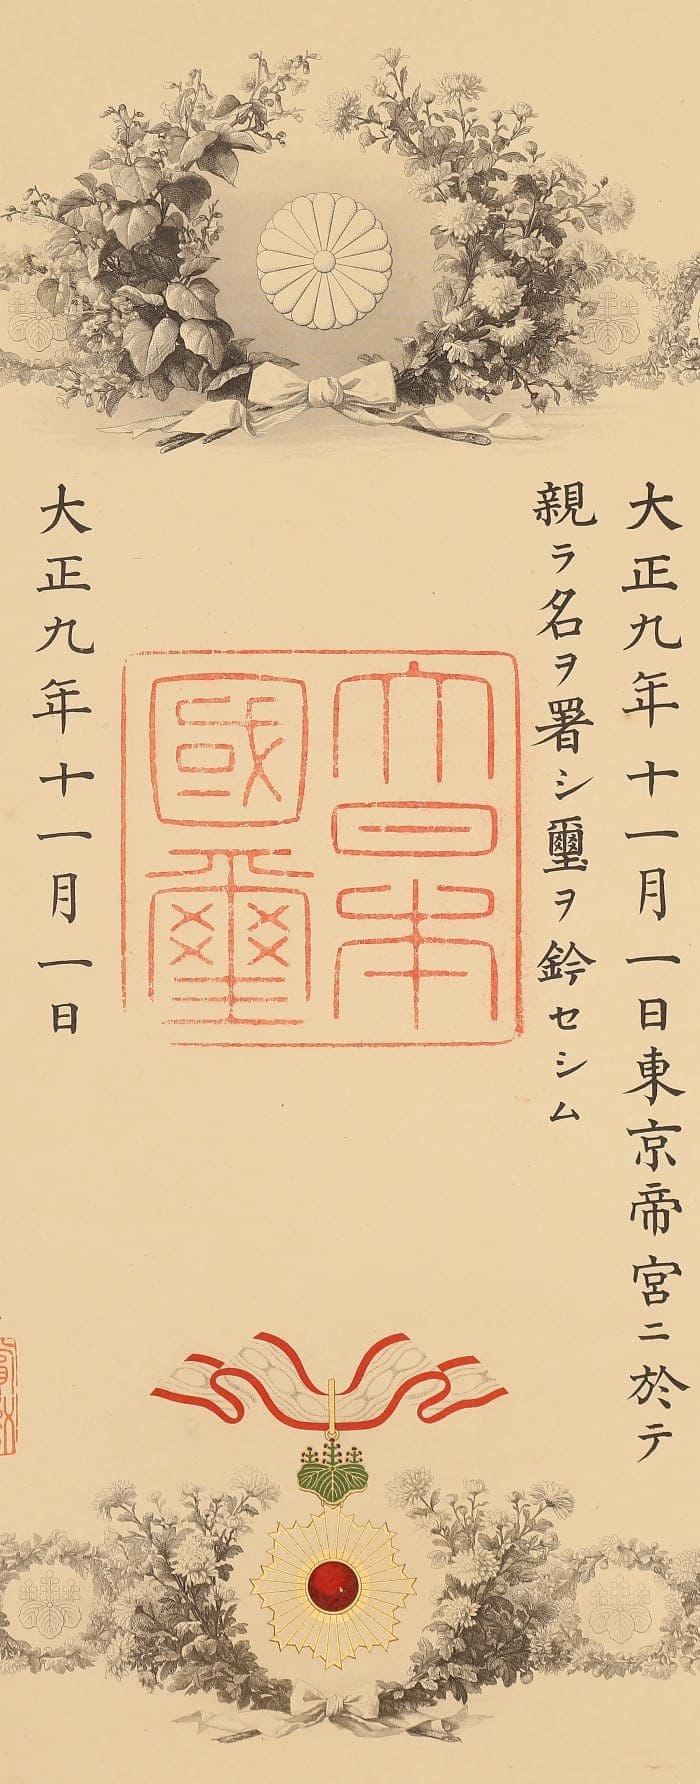 大正九年十一月一日東京帝宮ニ於テ
親ラ名ヲ署シ璽ヲ鈐セシム
大日本
國璽
大正九年十一月一日